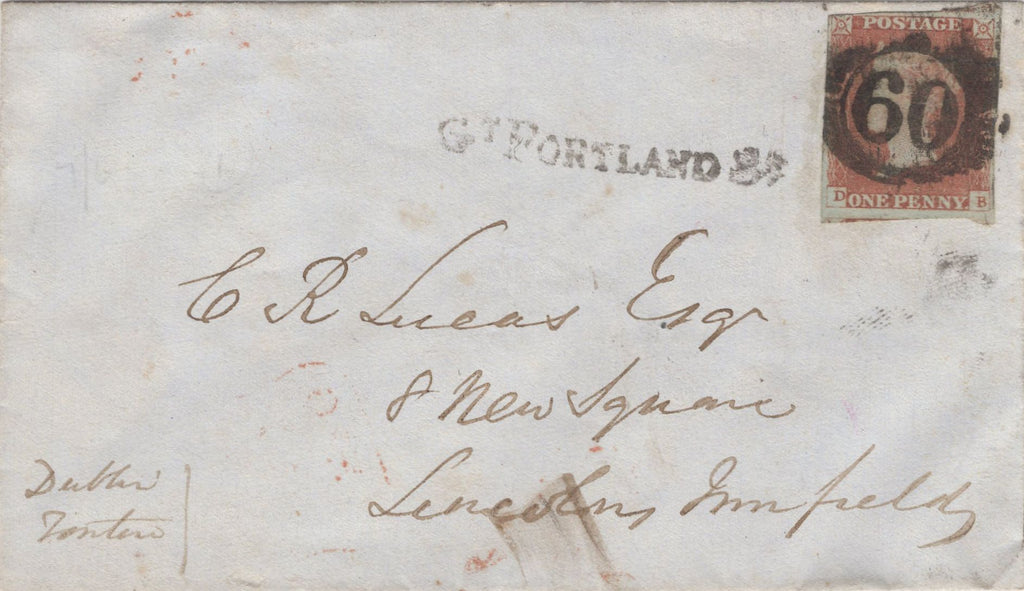 POSTAGE
60
ONE PENNY
D B
GT PORTLAND St
C R Lucas Esqr
8 New Square
Lincolns Innfields
Dublin
Tontine